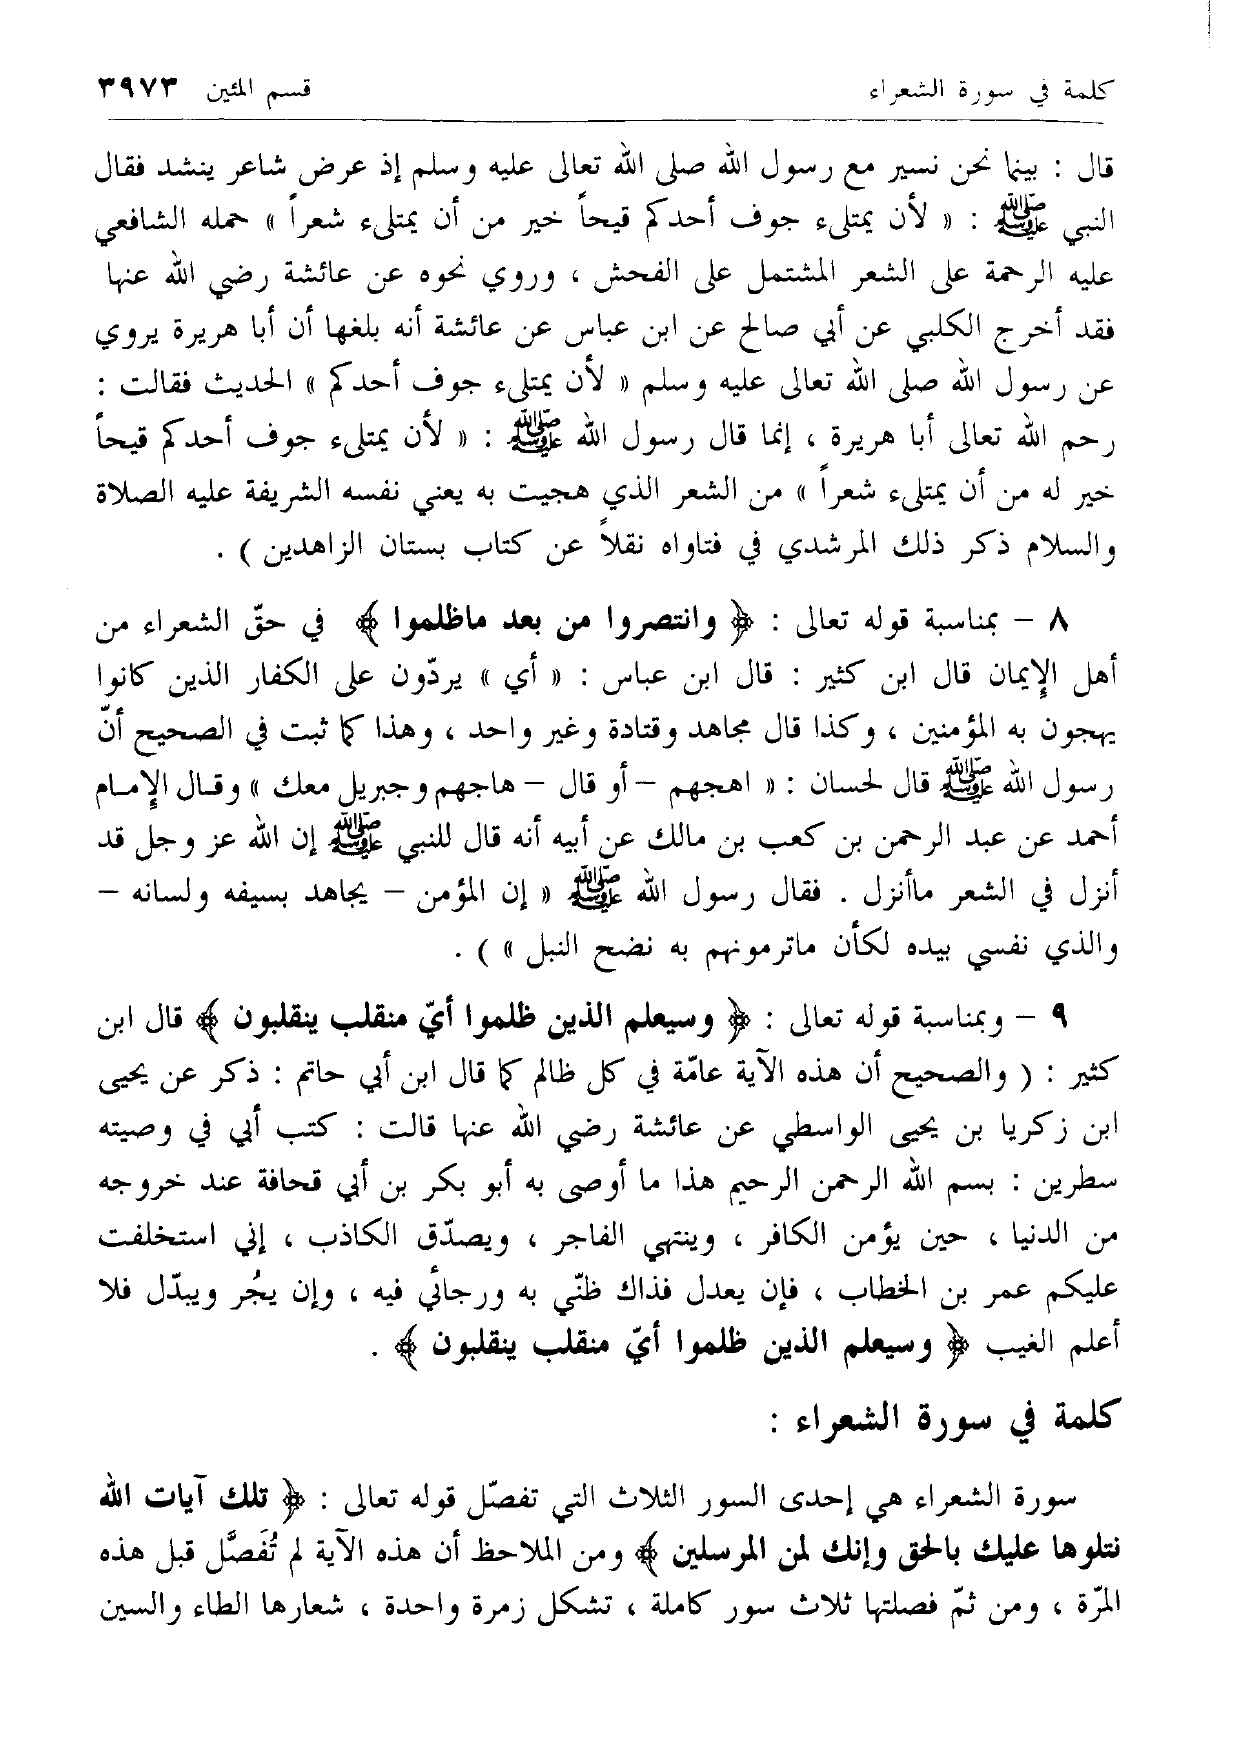 كلمة في سورة الشعراء قسم المئين ٣٩٧٣
قال : بينما نحن نسير مع رسول الله صلى الله تعالى عليه وسلم إذ عرض شاعر ينشد فقال
النبي ﷺ : « لأن يمتلىء جوف أحدكم قيحاً خير من أن يمتلىء شعراً » حمله الشافعي
عليه الرحمة على الشعر المشتمل على الفحش ، وروي نحوه عن عائشة رضي الله عنها
فقد أخرج الكلبي عن أبي صالح عن ابن عباس عن عائشة أنه بلغها أن أبا هريرة يروي
عن رسول الله صلى الله تعالى عليه وسلم « لأن يمتلىء جوف أحدكم » الحديث فقالت :
رحم الله تعالى أبا هريرة ، إنما قال رسول الله ﷺ : « لأن يمتلىء جوف أحدكم قيحاً
خير له من أن يمتلىء شعراً » من الشعر الذي هجيت به يعني نفسه الشريفة عليه الصلاة
والسلام ذكر ذلك المرشدي في فتاواه نقلاً عن كتاب بستان الزاهدين ) .
٨ – بمناسبة قوله تعالى : ﴿ وانتصروا من بعد ماظلموا ﴾ في حقّ الشعراء من
أهل الإيمان قال ابن كثير : قال ابن عباس : « أي » يردّون على الكفار الذين كانوا
يهجون به المؤمنين ، وكذا قال مجاهد وقتادة وغير واحد ، وهذا كما ثبت في الصحيح أنّ
رسول الله ﷺ قال لحسان : « اهجهم – أو قال – هاجهم وجبريل معك » وقال الإمام
أحمد عن عبد الرحمن بن كعب بن مالك عن أبيه أنه قال للنبي ﷺ إن الله عز وجل قد
أنزل في الشعر ماأنزل . فقال رسول الله ﷺ « إن المؤمن – يجاهد بسيفه ولسانه –
والذي نفسي بيده لكأن ماترمونهم به نضح النبل » ) .
٩ – وبمناسبة قوله تعالى : ﴿ وسيعلم الذين ظلموا أيّ منقلب ينقلبون ﴾ قال ابن
كثير : ( والصحيح أن هذه الآية عامّة في كل ظالم كما قال ابن أبي حاتم : ذكر عن يحيى
ابن زكريا بن يحيى الواسطي عن عائشة رضي الله عنها قالت : كتب أبي في وصيته
سطرين : بسم الله الرحمن الرحيم هذا ما أوصى به أبو بكر بن أبي قحافة عند خروجه
من الدنيا ، حين يؤمن الكافر ، وينتهي الفاجر ، ويصدّق الكاذب ، إني استخلفت
عليكم عمر بن الخطاب ، فإن يعدل فذاك ظنّي به ورجائي فيه ، وإن يجُر ويبدّل فلا
أعلم الغيب ﴿ وسيعلم الذين ظلموا أيّ منقلب ينقلبون ﴾ .
كلمة في سورة الشعراء :
سورة الشعراء هي إحدى السور الثلاث التي تفصّل قوله تعالى : ﴿ تلك آيات الله
نتلوها عليك بالحق وإنك لمن المرسلين ﴾ ومن الملاحظ أن هذه الآية لم تُفَصَّل قبل هذه
المرّة ، ومن ثمّ فصلتها ثلاث سور كاملة ، تشكل زمرة واحدة ، شعارها الطاء والسين